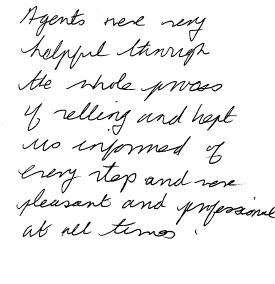 Agents were very
helpful through
the whole process
of selling and kept
us informed of
every step and were
pleasant and professional
at all times.